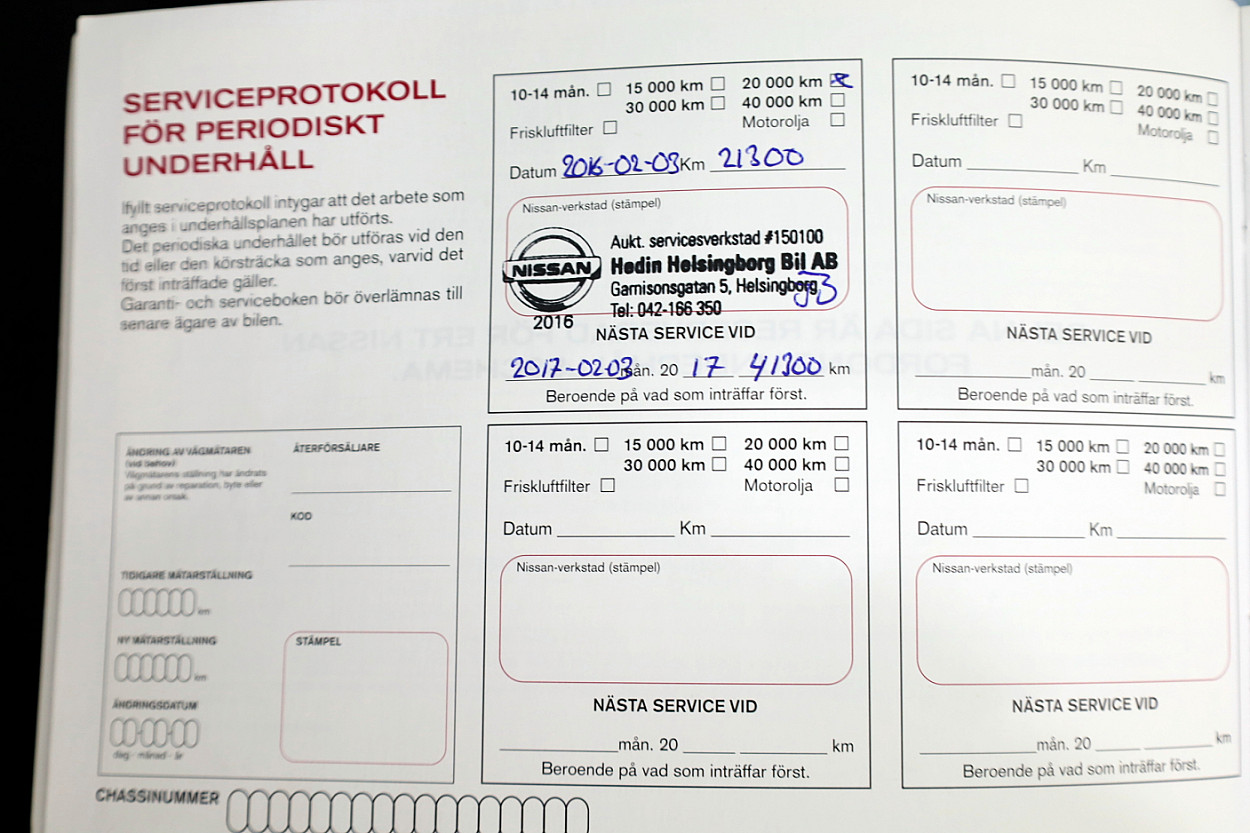 SERVICEPROTOKOLL
FÖR PERIODISKT
UNDERHÅLL
Ifyllt serviceprotokoll intygar att det arbete som
anges i underhållsplanen har utförts.
Det periodiska underhållet bör utföras vid den
tid eller den körsträcka som anges, varvid det
först inträffade gäller.
Garanti- och serviceboken bör överlämnas till
senare ägare av bilen.
10-14 mån. 15 000 km 20 000 km
30 000 km 40 000 km
Friskluftfilter Motorolja
Datum 2016-02-03 Km 21300
Nissan-verkstad (stämpel)
NISSAN
2016
Aukt. servicesverkstad #150100
Hedin Helsingborg Bil AB
Garnisonsgatan 5, Helsingborg
Tel: 042-166 350
NÄSTA SERVICE VID
2017-02-03 mån. 20 17 41300 km
Beroende på vad som inträffar först.
10-14 mån. 15 000 km 20 000 km
30 000 km 40 000 km
Friskluftfilter Motorolja
Datum Km
Nissan-verkstad (stämpel)
NÄSTA SERVICE VID
mån. 20 km
Beroende på vad som inträffar först.
ÄNDRING AV VÄGMÄTAREN
(vid behov)
Vägmätarens ställning har ändrats
på grund av reparation, byte eller
av annan orsak.
TIDIGARE MÄTARSTÄLLNING
km
NY MÄTARSTÄLLNING
km
ÄNDRINGSDATUM
dag - månad - år
ÅTERFÖRSÄLJARE
KOD
STÄMPEL
10-14 mån. 15 000 km 20 000 km
30 000 km 40 000 km
Friskluftfilter Motorolja
Datum Km
Nissan-verkstad (stämpel)
NÄSTA SERVICE VID
mån. 20 km
Beroende på vad som inträffar först.
10-14 mån. 15 000 km 20 000 km
30 000 km 40 000 km
Friskluftfilter Motorolja
Datum Km
Nissan-verkstad (stämpel)
NÄSTA SERVICE VID
mån. 20 km
Beroende på vad som inträffar först.
CHASSINUMMER